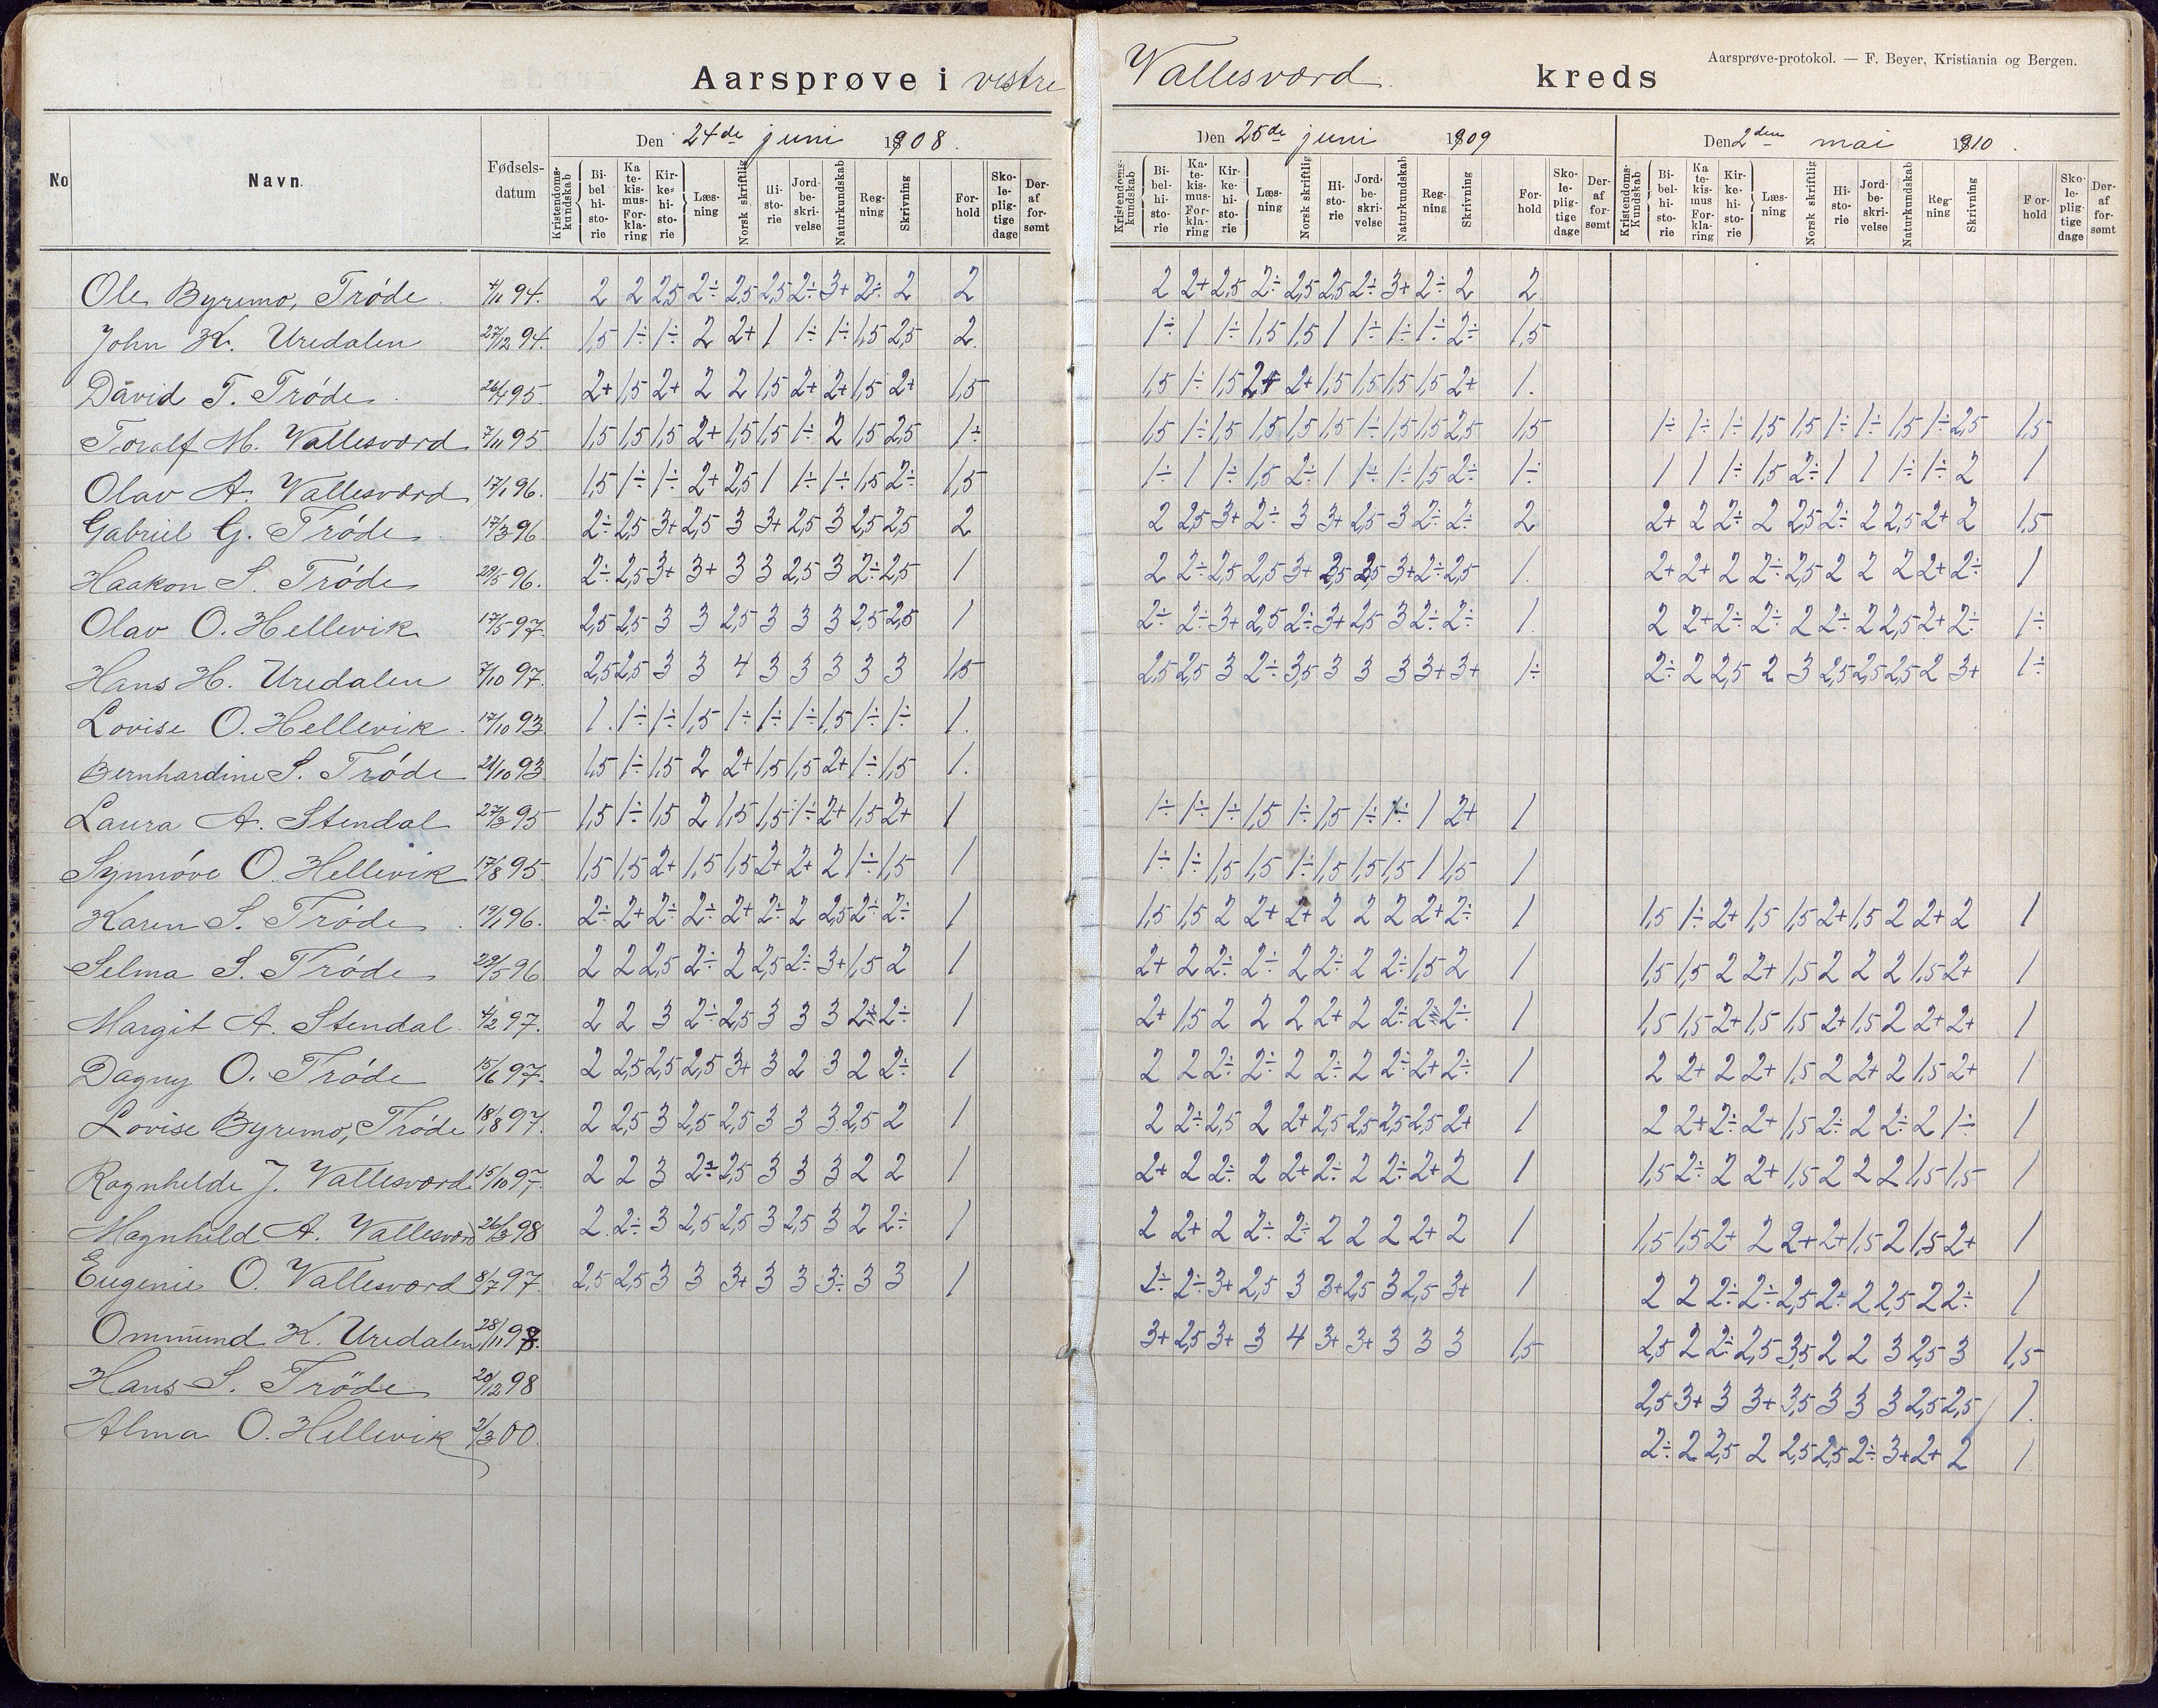 Aarsprøve-protokol. — F. Beyer, Kristiania og Bergen.
Aarsprøve i vestre Vallesværd kreds
Den 24de juni 1908. Den 25de juni 1909 Den 2den mai 1910.
No Navn. Fødsels-datum Kristendoms-kundskab Bi-bel-hi-sto-rie Ka-te-kis-mus-For-kla-ring Kir-ke-hi-sto-rie Læs-ning Norsk skriftlig Hi-sto-rie Jord-be-skri-velse Naturkundskab Reg-ning Skrivning For-hold Sko-le-plig-tige dage Der-af for-sømt Kristendoms-kundskab Bi-bel-hi-sto-rie Ka-te-kis-mus-For-kla-ring Kir-ke-hi-sto-rie Læs-ning Norsk skriftlig Hi-sto-rie Jord-be-skri-velse Naturkundskab Reg-ning Skrivning For-hold Sko-le-plig-tige dage Der-af for-sømt Kristendoms-Kundskab Bi-bel-hi-sto-rie Ka-te-kis-mus For-kla-ring Kir-ke-hi-sto-rie Læs-ning Norsk skriftlig Hi-sto-rie Jord-be-skri-velse Naturkundskab Reg-ning Skrivning For-hold Sko-le-plig-tige dage Der-af for-sømt
Ole Byremo, Trøde 4/11 94. 2 2 2,5 2÷ 2,5 2,5 2÷ 3+ 2÷ 2 2 2 2+ 2,5 2÷ 2,5 2,5 2÷ 3+ 2÷ 2 2
John K. Uredalen 27/12 94. 1,5 1÷ 1÷ 2 2+ 1 1÷ 1÷ 1,5 2,5 2. 1÷ 1 1÷ 1,5 1,5 1 1÷ 1÷ 1÷ 2÷ 1,5
David T. Trøde 26/4 95. 2+ 1,5 2+ 2 2 1,5 2+ 2+ 1,5 2+ 1,5 1,5 1÷ 1,5 2+ 2+ 1,5 1,5 1,5 1,5 2+ 1.
Toralf M. Vallesværd 7/11 95. 1,5 1,5 1,5 2+ 1,5 1,5 1÷ 2 1,5 2,5 1÷ 1,5 1÷ 1,5 1,5 1,5 1,5 1÷ 1,5 1,5 2,5 1,5 1÷ 1÷ 1÷ 1,5 1,5 1÷ 1÷ 1,5 1÷ 2,5 1,5
Olav A. Vallesværd 17/1 96. 1,5 1÷ 1÷ 2+ 2,5 1 1÷ 1÷ 1,5 2÷ 1,5 1÷ 1 1÷ 1,5 2÷ 1 1÷ 1÷ 1,5 2÷ 1÷ 1 1 1÷ 1,5 2÷ 1 1 1÷ 1÷ 2 1
Gabriel G. Trøde 17/3 96 2÷ 2,5 3+ 2,5 3 3+ 2,5 3 2,5 2,5 2 2 2,5 3+ 2÷ 3 3+ 2,5 3 2÷ 2÷ 2 2+ 2 2÷ 2 2,5 2÷ 2 2,5 2+ 2 1,5
Haakon S. Trøde 29/5 96. 2÷ 2,5 3+ 3+ 3 3 2,5 3 2÷ 2,5 1 2 2÷ 2,5 2,5 3+ 2,5 2,5 3+ 2÷ 2,5 1. 2+ 2+ 2 2÷ 2,5 2 2 2 2+ 2÷ 1
Olav O. Hellevik 17/5 97. 2,5 2,5 3 3 2,5 3 3 3 2,5 2,5 1 2÷ 2÷ 3+ 2,5 2÷ 3+ 2,5 3 2÷ 2÷ 1. 2 2+ 2÷ 2÷ 2 2÷ 2 2,5 2+ 2÷ 1÷
Hans H. Uredalen 7/10 97. 2,5 2,5 3 3 4 3 3 3 3 3 1,5 2,5 2,5 3 2÷ 3,5 3 3 3 3+ 3+ 1÷ 2÷ 2 2,5 2 3 2,5 2,5 2,5 2 3+ 1÷
Lovise O. Hellevik 17/10 93. 1. 1÷ 1÷ 1,5 1÷ 1÷ 1÷ 1,5 1÷ 1÷ 1.
Bernhardine S. Trøde 21/10 93. 1,5 1÷ 1,5 2 2+ 1,5 1,5 2+ 1÷ 1,5 1.
Laura A. Stendal 27/3 95 1,5 1÷ 1,5 2 1,5 1,5 1÷ 2+ 1,5 2+ 1 1÷ 1÷ 1÷ 1,5 1÷ 1,5 1÷ 1÷ 1 2+ 1
Synnøve O. Hellevik 17/8 95. 1,5 1,5 2+ 1,5 1,5 2+ 2+ 2 1÷ 1,5 1 1÷ 1÷ 1,5 1,5 1÷ 1,5 1,5 1,5 1 1,5 1
Karen S. Trøde 19/1 96. 2÷ 2+ 2÷ 2÷ 2+ 2÷ 2 2,5 2÷ 2÷ 1 1,5 1,5 2 2+ 2+ 2 2 2 2+ 2÷ 1 1,5 1÷ 2+ 1,5 1,5 2+ 1,5 2 2+ 2 1
Selma S. Trøde 29/5 96 2 2 2,5 2÷ 2 2,5 2÷ 3+ 1,5 2 1 2+ 2 2÷ 2÷ 2 2÷ 2 2÷ 1,5 2 1 1,5 1,5 2 2+ 1,5 2 2 2 1,5 2+ 1
Margit A. Stendal 4/2 97. 2 2 3 2÷ 2,5 3 3 3 2÷ 2÷ 1 2+ 1,5 2 2 2 2+ 2 2÷ 2÷ 2÷ 1 1,5 1,5 2+ 1,5 1,5 2+ 1,5 2 2+ 2+ 1
Dagny O. Trøde 15/6 97. 2 2,5 2,5 2,5 3+ 3 2 3 2 2÷ 1 2 2 2÷ 2÷ 2 2÷ 2 2÷ 2+ 2÷ 1 2 2+ 2 2+ 1,5 2 2+ 2 1,5 2+ 1
Lovise Byremo, Trøde 18/8 97. 2 2,5 3 2,5 2,5 3 3 3 2,5 2 1 2 2÷ 2,5 2 2+ 2,5 2,5 2,5 2,5 2+ 1 2 2+ 2÷ 2+ 1,5 2÷ 2 2÷ 2 1÷ 1
Ragnhilde J. Vallesværd 15/10 97. 2 2 3 2÷ 2,5 3 3 3 2 2 1 2+ 2 2÷ 2 2+ 2÷ 2 2÷ 2+ 2 1 1,5 2÷ 2 2+ 1,5 2 2 2 1,5 1,5 1
Magnhild A. Vallesværd 26/3 98 2 2÷ 3 2,5 2,5 3 2,5 3 2 2÷ 1 2 2+ 2 2÷ 2÷ 2 2 2 2+ 2 1 1,5 1,5 2+ 2 2+ 2+ 1,5 2 1,5 2+ 1
Eugenie O. Vallesværd 8/7 97. 2,5 2,5 3 3 3+ 3 3 3÷ 3 3 1 2÷ 2÷ 3+ 2,5 3 3+ 2,5 3 2,5 3+ 1 2 2 2÷ 2÷ 2,5 2÷ 2 2,5 2 2÷ 1
Ommund K. Uredalen 28/11 98. 3+ 2,5 3+ 3 4 3+ 3+ 3 3 3 1,5 2,5 2 2÷ 2,5 3,5 2 2 3 2,5 3 1,5
Hans S. Trøde 20/12 98 2,5 3+ 3 3+ 3,5 3 3 3 2,5 2,5 1.
Alma O. Hellevik 2/3 00. 2÷ 2 2,5 2 2,5 2,5 2÷ 3+ 2+ 2 1